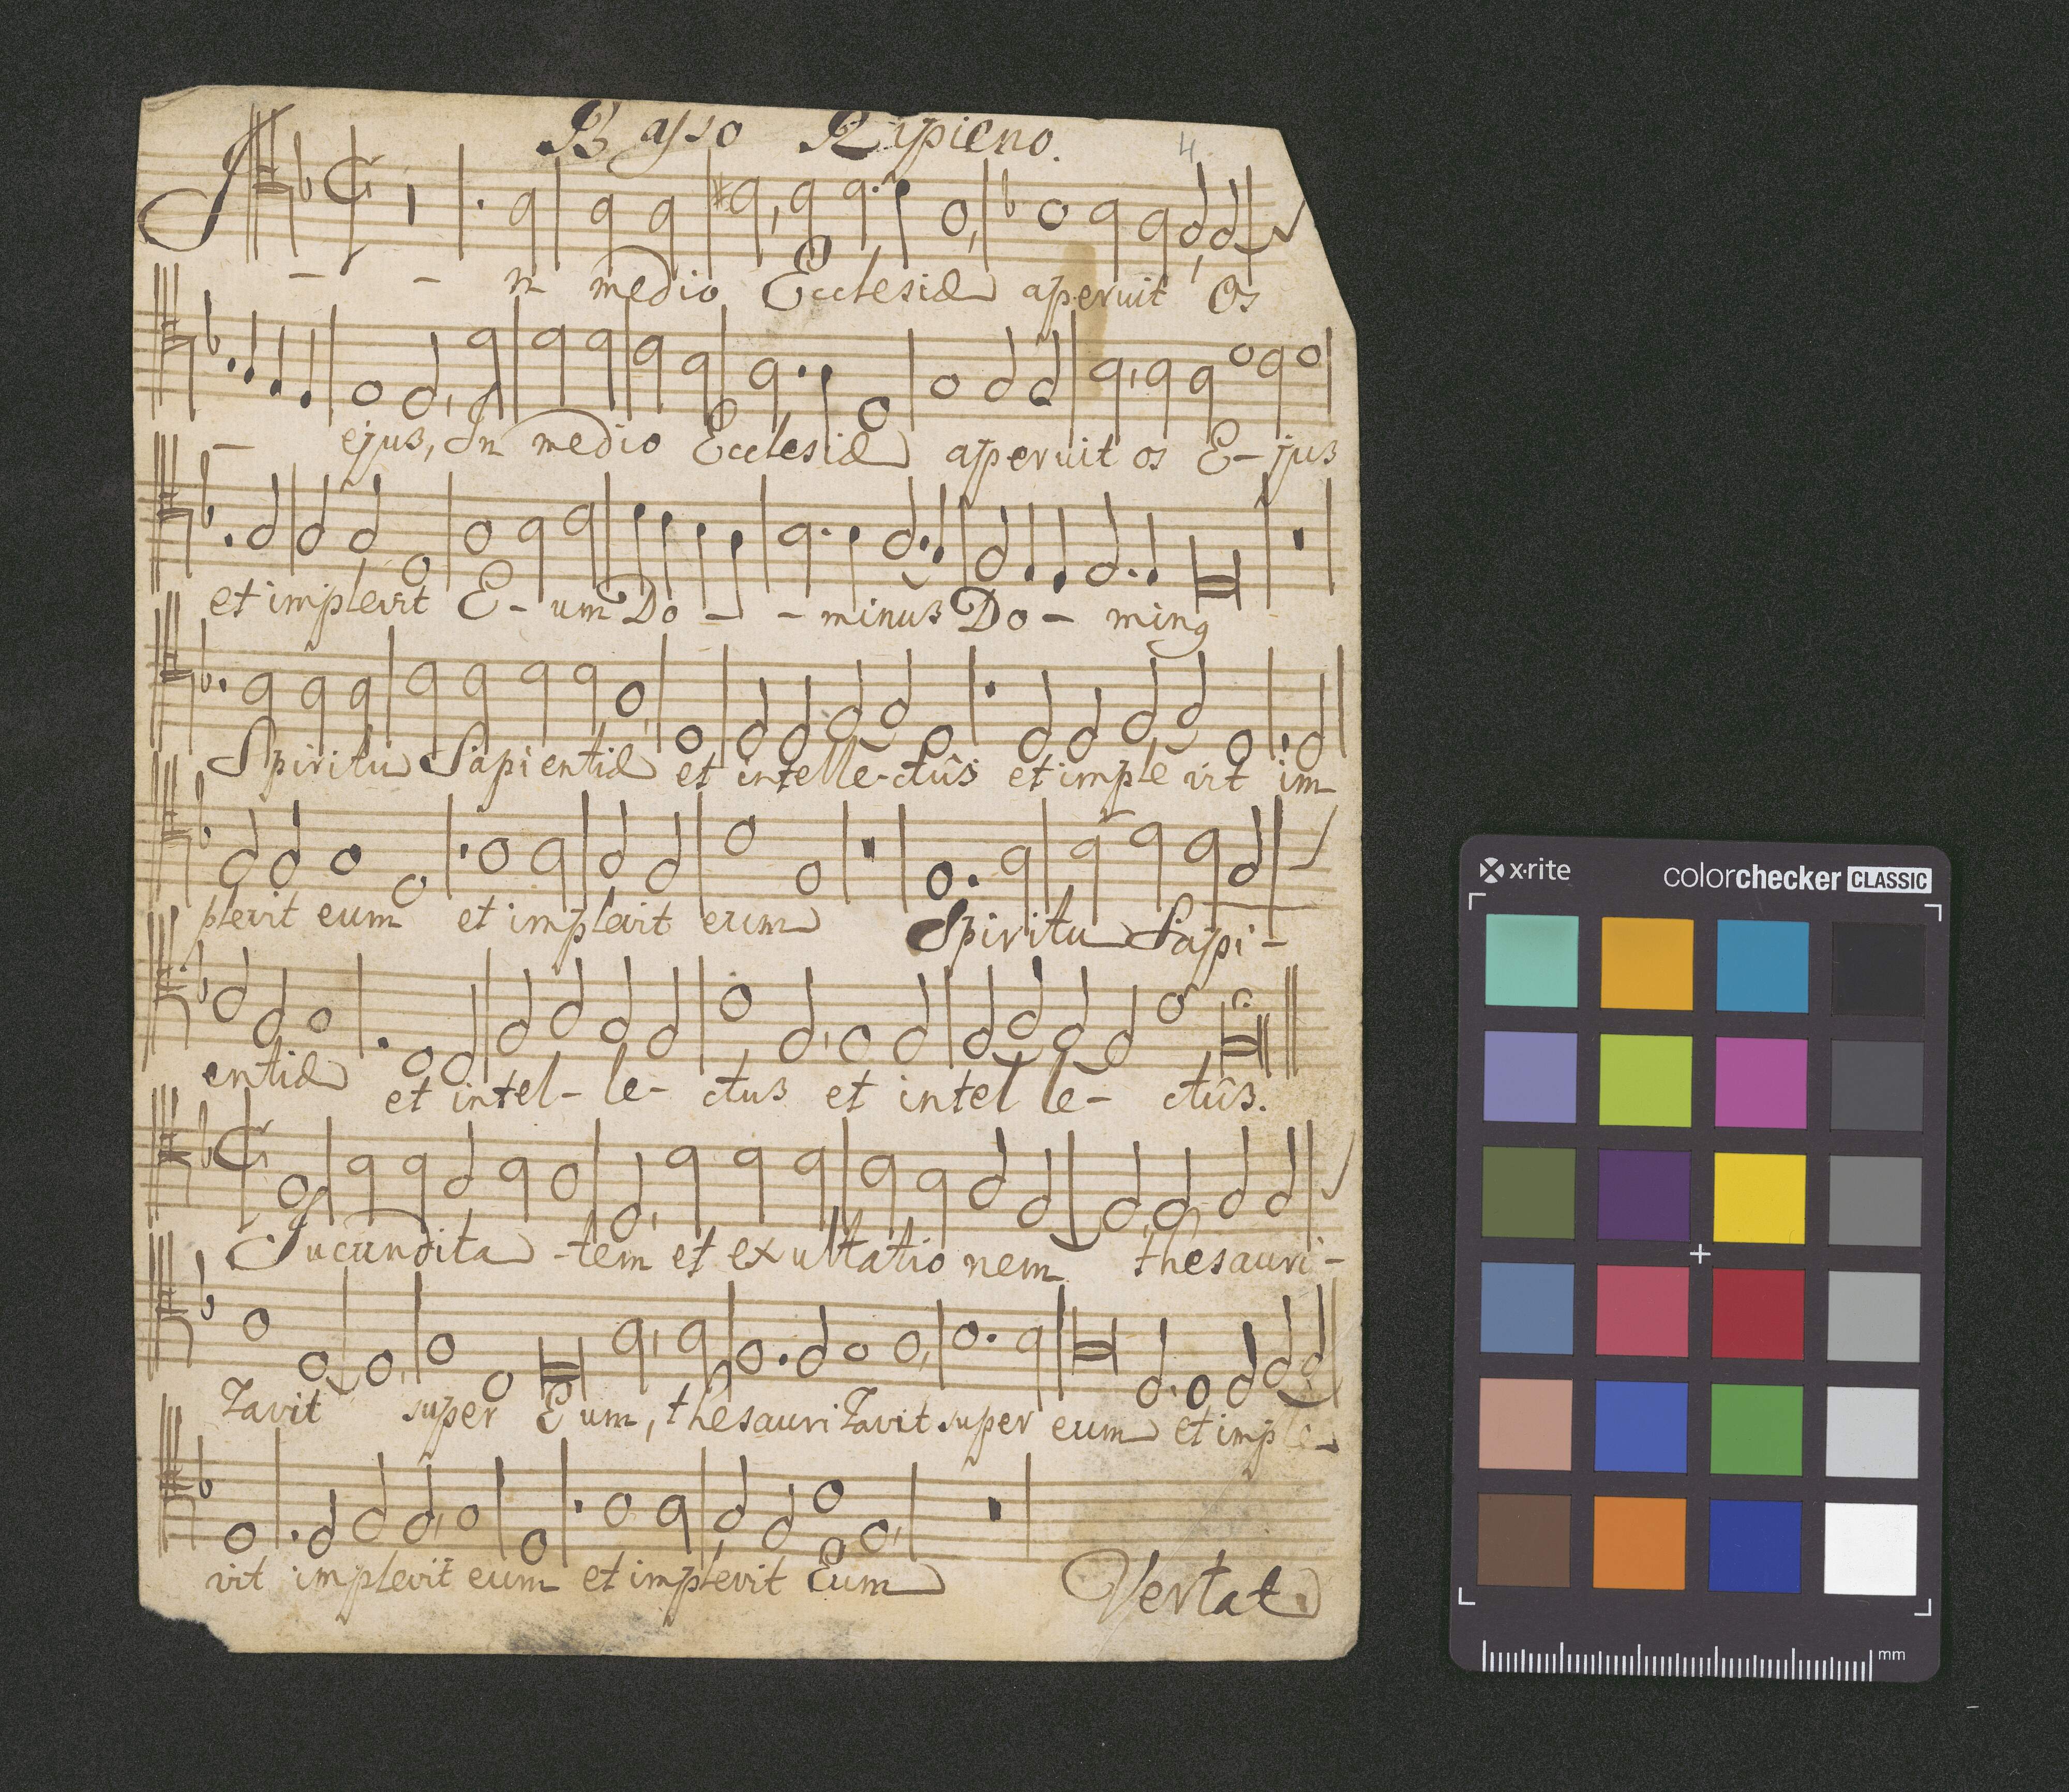 Basso Ripieno.
4.
In medio Ecclesiæ aperuit Os
- ejus, In medio Ecclesiæ aperuit os E- jus
et implevit E- um Do - - minus Do - ming
Spiritu Sapientiæ et intelle- ctûs et imple vit im
plevit eum et implevit eum Spiritu Sapi-
entiæ et intel- le- ctus et intel le- ctûs.
Jucundita -tem et exultatio nem thesauri-
Zavit super Eum, thesauriZavit super eum et imple-
vit implevit eum et implevit Eum
Vertat
x·rite colorchecker CLASSIC
mm